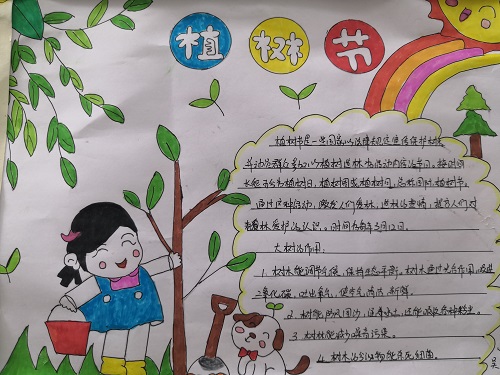 植树节
植树节是一些国家以法律规定宣传保护树木
并动员群众参加以植树造林为活动内容的节日。按时间
长短可分为植树日、植树周或植树月，总称国际植树节。
通过这种活动，激发人们爱林、造林的热情，提高人们对
森林爱护的认识。时间为每年3月12日。
大树的作用：
1. 树木能调节气候，保持生态平衡，树木通过光合作用，吸进
二氧化碳，吐出氧气，使空气清洁、新鲜。
2. 树能防风固沙，涵养水土，还能吸收各种粉尘。
3. 树林能减少噪音污染。
4. 树木的分泌物能杀死细菌。